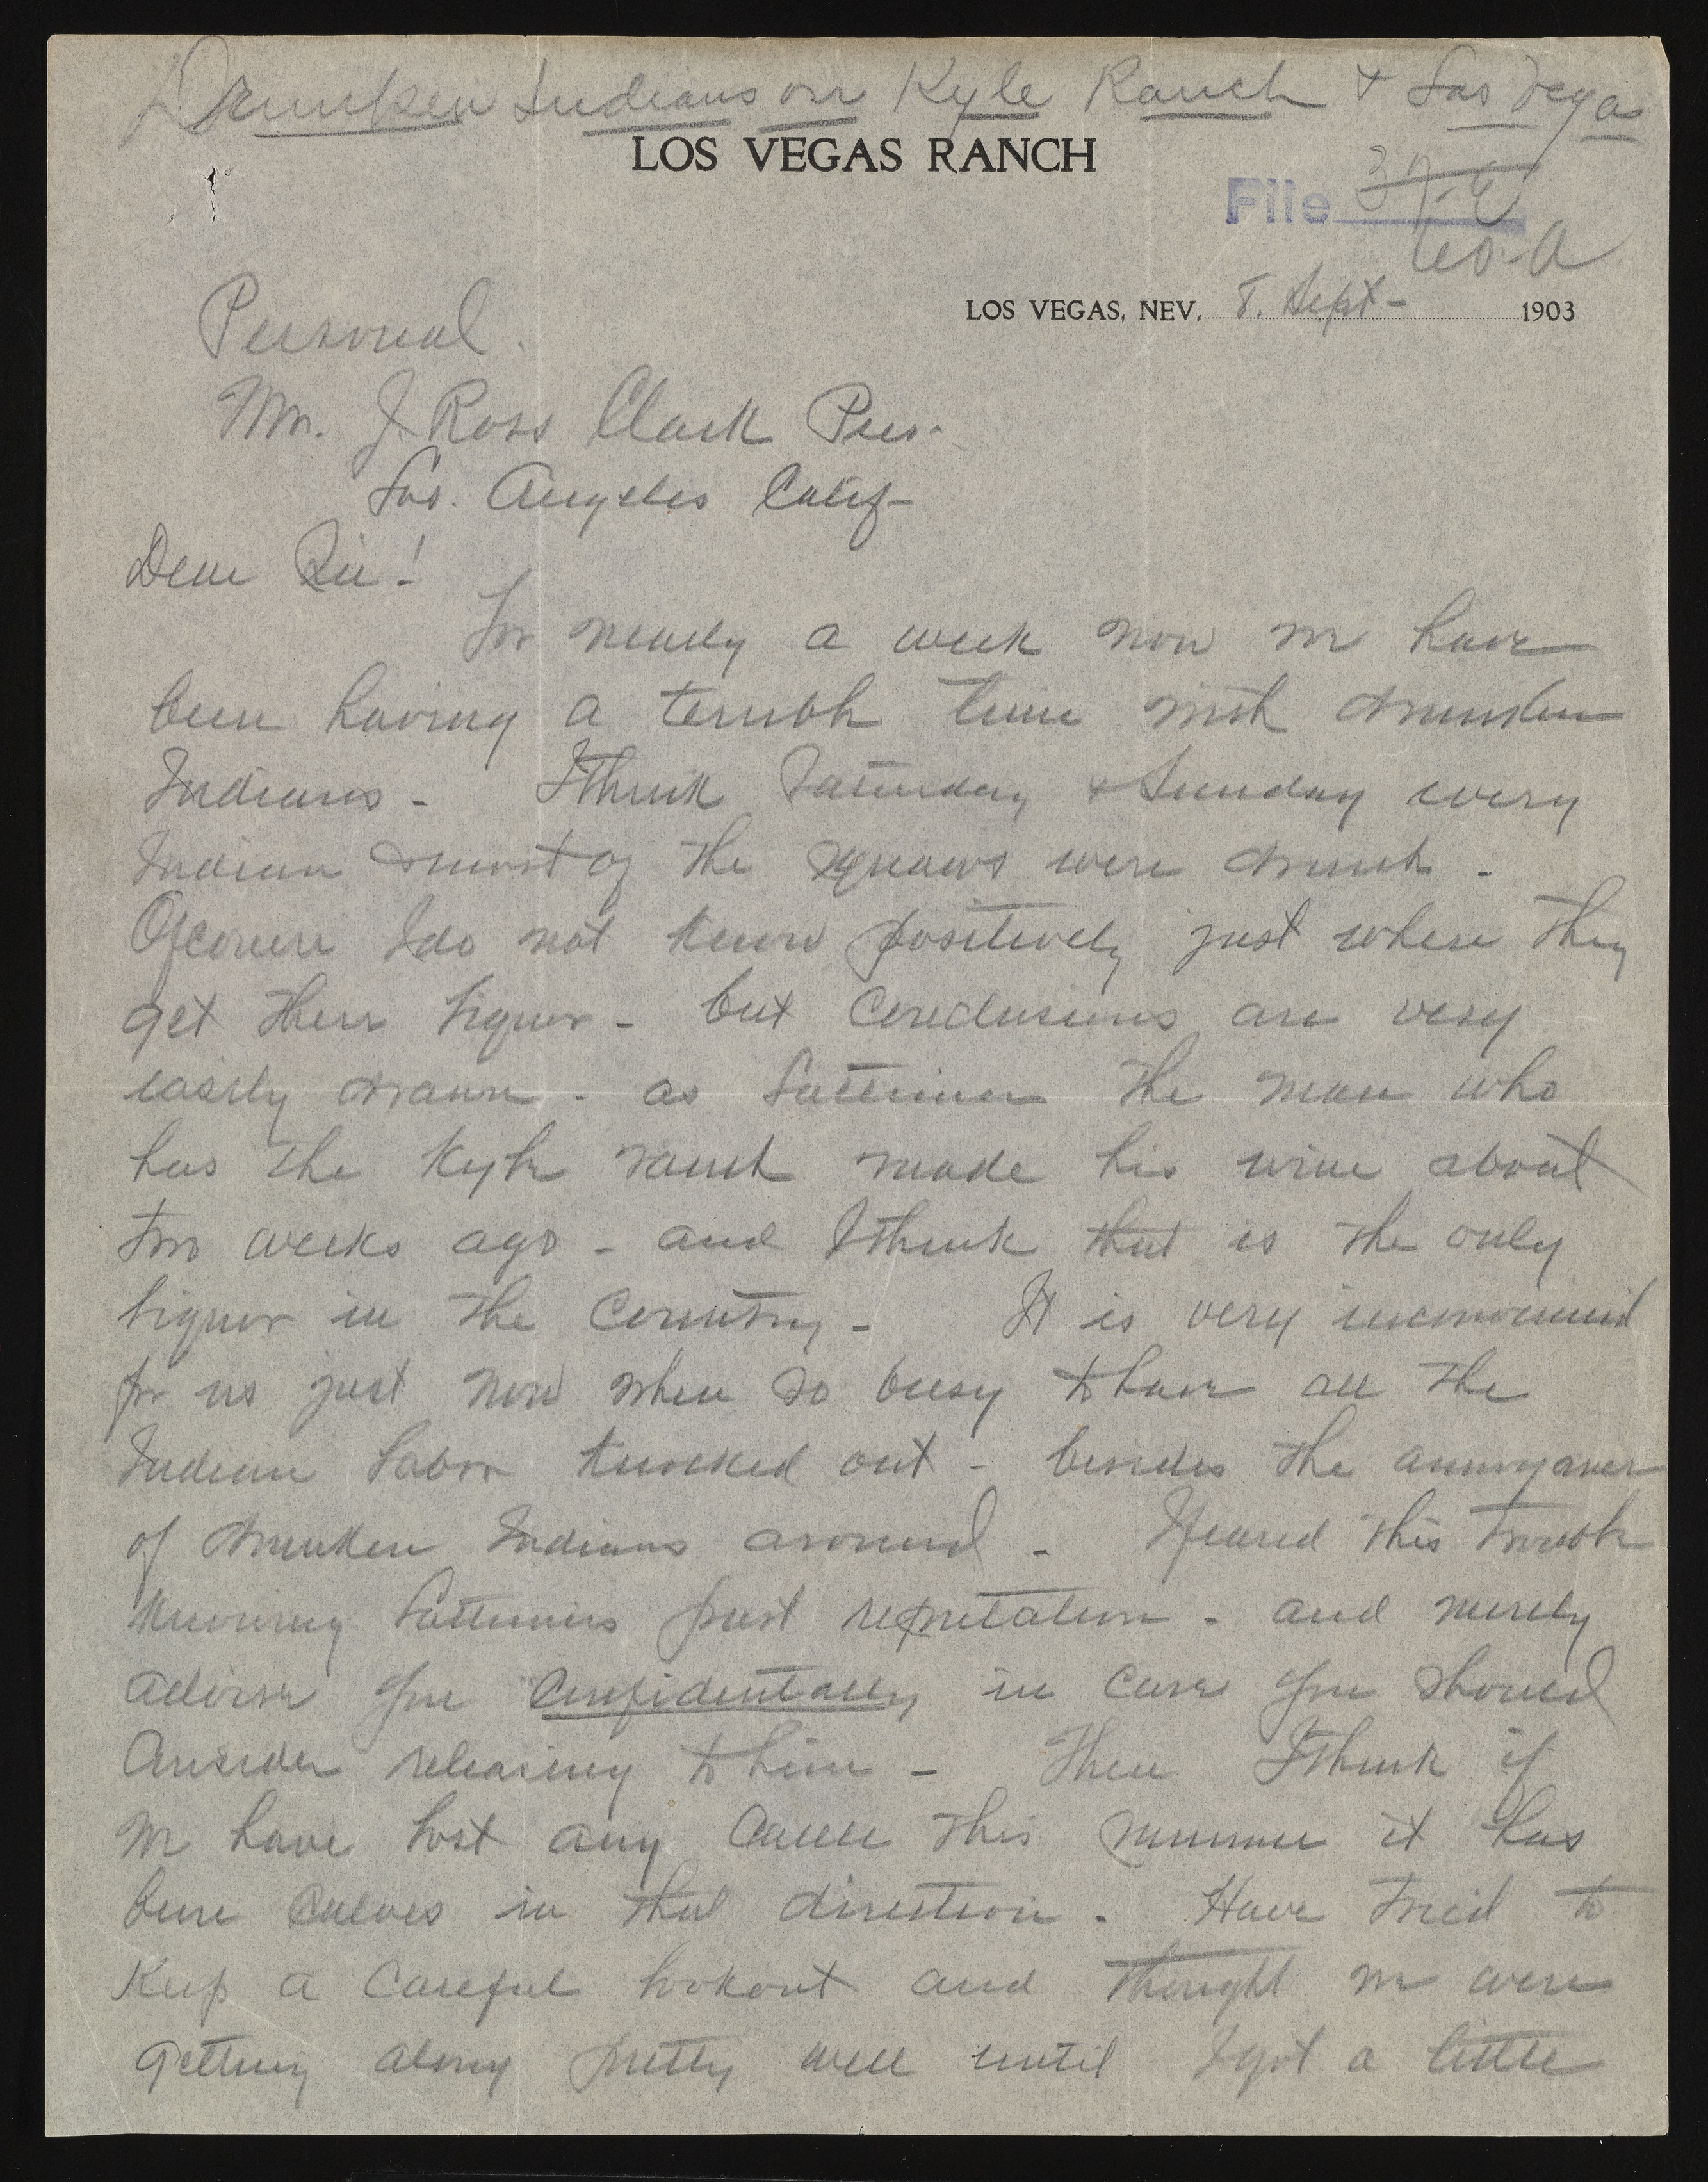 Drunken Indians on Kyle Ranch & Las Vegas
LOS VEGAS RANCH
File 37-2
60-A
LOS VEGAS, NEV. 8. Sept- 1903
Personal.
Mr. J. Ross Clark Pres.
Los. Angeles Calif-
Dear Sir!
For nearly a week now we have
been having a terrible time with drunken
Indians - I think Saturday & Sunday every
Indian & most of the squaws were drunk -
Of course I do not know positively just where they
get their liquor - but conclusions are very
easily drawn - as Lattimer the man who
has the Kyle ranch made his wine about
two weeks ago - and I think that is the only
liquor in the Country - It is very inconvenient
for us just now when so busy to have all the
Indian labor knocked out - besides the annoyance
of drunken Indians around - I feared this trouble
knowing Lattimers past reputation - and merely
advise you Confidentially in case you should
Consider releasing to him - Then I think if
we have lost any Cattle this summer it has
been calves in that direction. Have tried to
Keep a Careful lookout and thought we were
getting along pretty well until I got a little